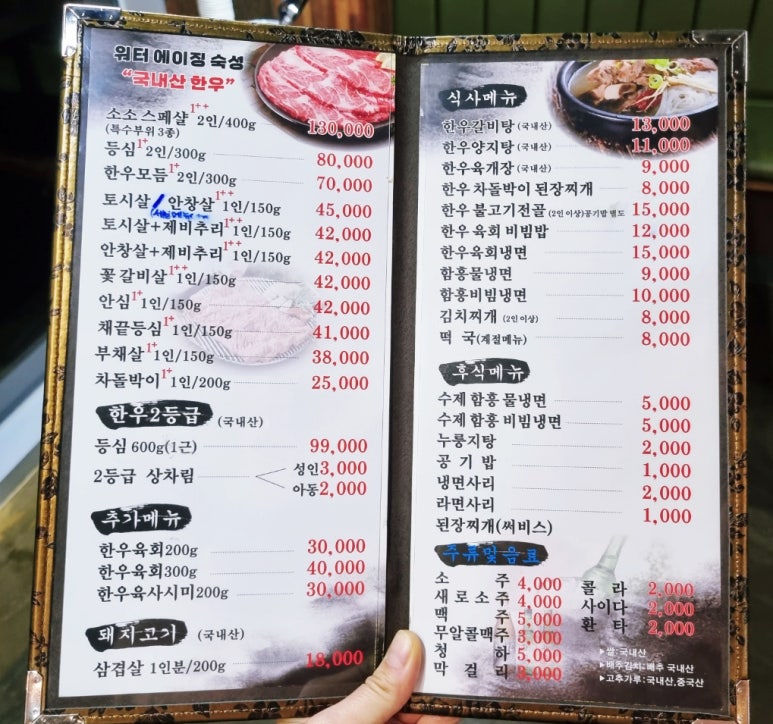 워터 에이징 숙성
"국내산 한우"
소소 스페샬 1++ 2인/400g 130,000
(특수부위 3종)
등심 1+ 2인/300g 80,000
한우모듬 1+ 2인/300g 70,000
토시살/안창살 1++ 1인/150g 45,000
토시살+제비추리 1++ 1인/150g 42,000
안창살+제비추리 1++ 1인/150g 42,000
꽃 갈비살 1++ 1인/150g 42,000
안심 1+ 1인/150g 42,000
채끝등심 1+ 1인/150g 41,000
부채살 1+ 1인/150g 38,000
차돌박이 1+ 1인/200g 25,000
한우2등급 (국내산)
등심 600g(1근) 99,000
2등급 상차림 성인3,000
아동2,000
추가메뉴
한우육회200g 30,000
한우육회300g 40,000
한우육사시미200g 30,000
돼지고기 (국내산)
삼겹살 1인분/200g 18,000
식사메뉴
한우갈비탕 (국내산) 13,000
한우양지탕 (국내산) 11,000
한우육개장 (국내산) 9,000
한우 차돌박이 된장찌개 8,000
한우 불고기전골 (2인 이상)공기밥 별도 15,000
한우 육회 비빔밥 12,000
한우육회냉면 15,000
함흥물냉면 9,000
함흥비빔냉면 10,000
김치찌개 (2인 이상) 8,000
떡 국(계절메뉴) 8,000
후식메뉴
수제 함흥 물냉면 5,000
수제 함흥 비빔냉면 5,000
누룽지탕 2,000
공 기 밥 1,000
냉면사리 2,000
라면사리 1,000
된장찌개(써비스)
주류및음료
소 주 4,000 콜 라 2,000
새 로 소 주 4,000 사이다 2,000
맥 주 5,000 환 타 2,000
무알콜맥주 3,000
청 하 5,000
막 걸 리 3,000
▶쌀: 국내산
▶배추김치: 배추 국내산
▶고추가루: 국내산,중국산